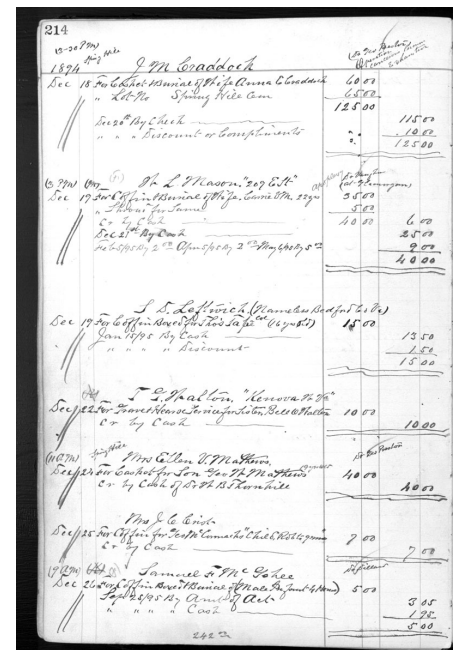 214
(3-30 P.M) Spring Hill
1894 J. M. Craddock
Dec 18 For Casket & Burial of Wife Anna E Craddock 60 00
" Lot-No Spring Hill Cem 65 00
125 00
Dec 20th By Check 115 00
" " " Discount or Compliments " 10 00
125 00
(3 P.M) W. L. Mason, "209 E St"
Dec 19 For Coffin & Burial of Wife, Carrie 22 yrs 35 00
" Shroud for Same 5 00
Cr by Cash 40 00 6 00
Dec 21st By Cash 25 00
Feb 5/95 By 2 00 Apr 5/95 By 2 00 May 6/95 By 5 00 9 00
40 00
S. D. Leftwich (Nameless Bedford Co Va)
Dec 19 For Coffin Boxed for 15 00
Jan 15/95 By Cash 13 50
" " " " Discount 1 50
15 00
T. G. Walton, "Kenova W Va"
Dec 22 For Gravel Hearse Service for Sister, Belle Walton 10 00
Cr by Cash 10 00
(11 A.M) Spring Hill
Mrs Ellen V. Mathews
Dec 24 For Casket for Son Geo W. Mathews 40 00
Cr by Cash of Dr W. B. Thornhill 40 00
Mrs J. C.
Dec 25 For Coffin for 7 00
Cr by Cash 7 00
Samuel F. McGehee
Dec 26 For Coffin Boxed & Burial of 5 00
Sept 25/95 By Amt of Act 3 05
" " " " Cash 1 95
5 00
242 00